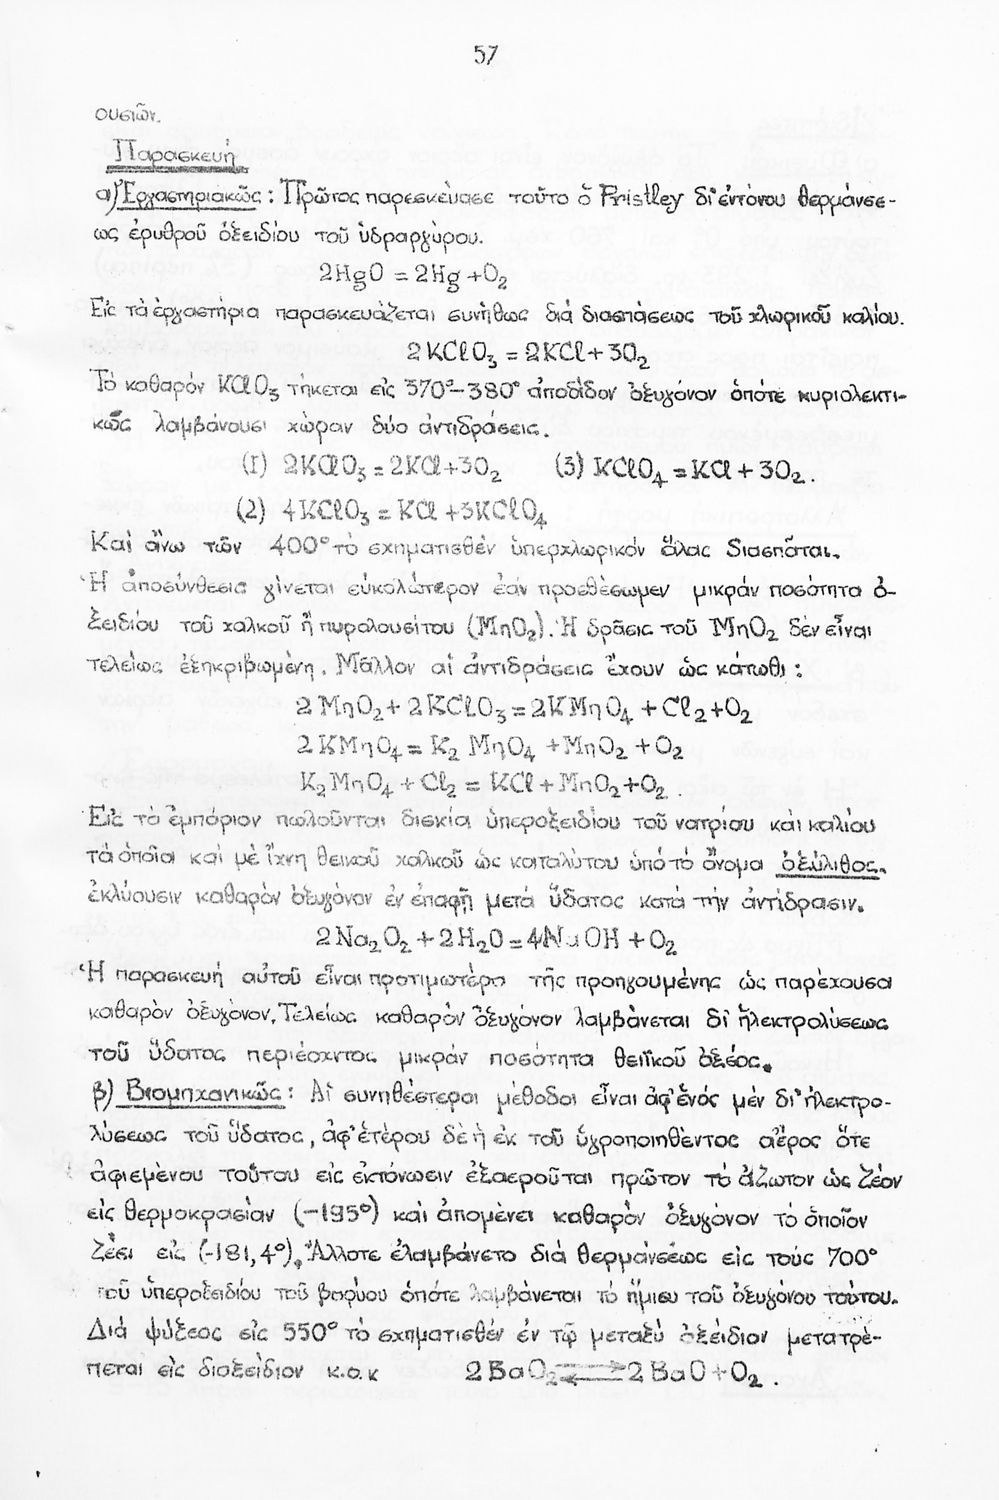 57
ουσιῶν.
Παρασκευή
α) Ἐργαστηριακῶς : Πρῶτος παρεσκεύασε τοῦτο ὁ Pristley δι' ἐντόνου θερμάνσε-
ως ἐρυθροῦ ὀξειδίου τοῦ ὑδραργύρου.
2HgO = 2Hg + O₂
Εἰς τὰ ἐργαστήρια παρασκευάζεται συνήθως διά διασπάσεως τοῦ χλωρικοῦ καλίου.
2KClO₃ = 2KCl + 3O₂
Τό καθαρόν KClO₃ τήκεται εἰς 370°-380° ἀποδίδον ὀξυγόνον ὁπότε κυριολεκτι-
κῶς λαμβάνουσι χώραν δύο ἀντιδράσεις.
(1) 2KClO₃ = 2KCl + 3O₂ (3) KClO₄ = KCl + 3O₂.
(2) 4KClO₃ = KCl + 3KClO₄
Καί ἄνω τῶν 400° τό σχηματισθέν ὑπερχλωρικόν ἅλας διασπᾶται.
Ἡ ἀποσύνθεσις γίνεται εὐκολώτερον ἐάν προσθέσωμεν μικράν ποσότητα ὀ-
ξειδίου τοῦ χαλκοῦ ἤ πυρολουσίτου (MnO₂). Ἡ δρᾶσις τοῦ MnO₂ δέν εἶναι
τελείως ἐξηκριβωμένη. Μᾶλλον αἱ ἀντιδράσεις ἔχουν ὡς κάτωθι :
2MnO₂ + 2KClO₃ = 2KMnO₄ + Cl₂ + O₂
2KMnO₄ = K₂MnO₄ + MnO₂ + O₂
K₂MnO₄ + Cl₂ = KCl + MnO₂ + O₂ .
Εἰς τό ἐμπόριον πωλοῦνται δισκία ὑπεροξειδίου τοῦ νατρίου καί καλίου
τά ὁποῖα καί μέ ἴχνη θειικοῦ χαλκοῦ ὡς καταλύτου ὑπό τό ὄνομα ὀξύλιθος.
ἐκλύουσιν καθαρόν ὀξυγόνον ἐν ἐπαφῇ μετά ὕδατος κατά τήν ἀντίδρασιν.
2Na₂O₂ + 2H₂O = 4NaOH + O₂
Ἡ παρασκευή αὐτοῦ εἶναι προτιμωτέρα τῆς προηγουμένης ὡς παρέχουσα
καθαρόν ὀξυγόνον. Τελείως καθαρόν ὀξυγόνον λαμβάνεται δι' ἠλεκτρολύσεως
τοῦ ὕδατος περιέοχντος μικράν ποσότητα θειϊκοῦ ὀξέος.
β) Βιομηχανικῶς : Αἱ συνηθέστεροι μέθοδοι εἶναι ἀφ' ἑνός μέν δι' ἠλεκτρο-
λύσεως τοῦ ὕδατος, ἀφ' ἑτέρου δέ ἡ ἐκ τοῦ ὑγροποιηθέντος ἀέρος ὅτε
ἀφιεμένου τούτου εἰς ἐκτόνωσιν ἐξαεροῦται πρῶτον τό ἄζωτον ὡς ζέον
εἰς θερμοκρασίαν (-195°) καί ἀπομένει καθαρόν ὀξυγόνον τό ὁποῖον
ζέει εἰς (-181,4°). Ἄλλοτε ἐλαμβάνετο διά θερμάνσεως εἰς τούς 700°
τοῦ ὑπεροξειδίου τοῦ βαρύου ὁπότε λαμβάνεται τό ἥμισυ τοῦ ὀξυγόνου τούτου.
Διά ψύξεος εἰς 550° τό σχηματισθέν ἐν τῷ μεταξύ ὀξείδιον μετατρέ-
πεται εἰς διοξείδιον κ.ο.κ 2BaO₂ ⇄ 2BaO + O₂ .